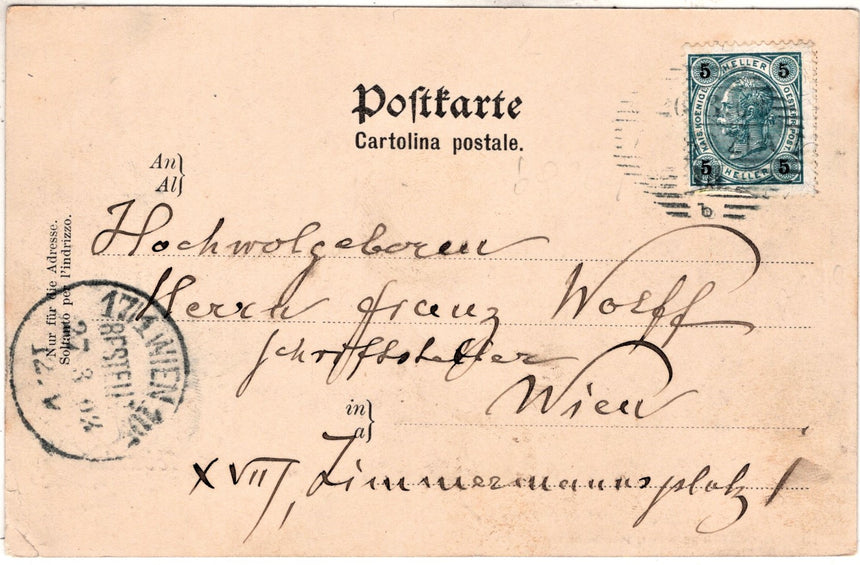 Postkarte
Cartolina postale.
5 HELLER 5
KAIS. KOENIGL. OESTERR. POST.
5 HELLER 5
b
An
Al
Hochwolgeboren
Herrn Franz Wolff
Schriftsteller
in
a
Wien
XVII, Zimmermannsplatz 1
Nur für die Adresse.
Soltanto per l'indrizzo.
17/1 WIEN
BESTELLT
27 3 02